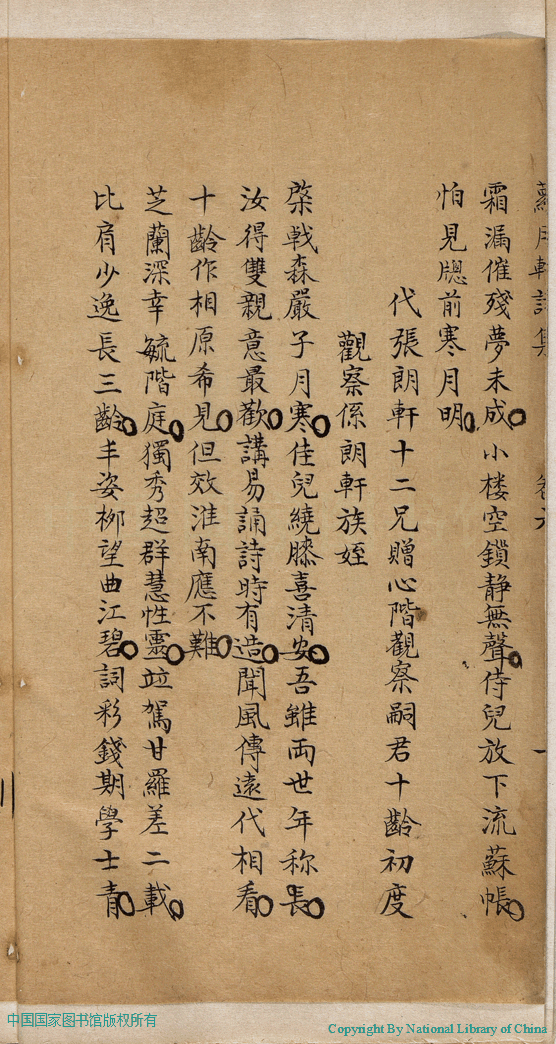 蘿月軒詩集　卷六　一
霜漏催殘夢未成小楼空鎖静無聲侍兒放下流蘇帳
怕見牕前寒月明
代張朗軒十二兄贈心階觀察嗣君十齡初度
觀察係朗軒族姪
棨戟森嚴子月寒佳兒繞膝喜清安吾雖兩世年称長
汝得雙親意最歡講易誦詩時有造聞風傳遠代相看
十齡作相原希見但效淮南應不難
芝蘭深幸毓階庭獨秀超群慧性靈竝駕甘羅差二載
比肩少逸長三齡丰姿柳望曲江碧詞彩錢期學士青
中国国家图书馆版权所有
Copyright By National Library of China